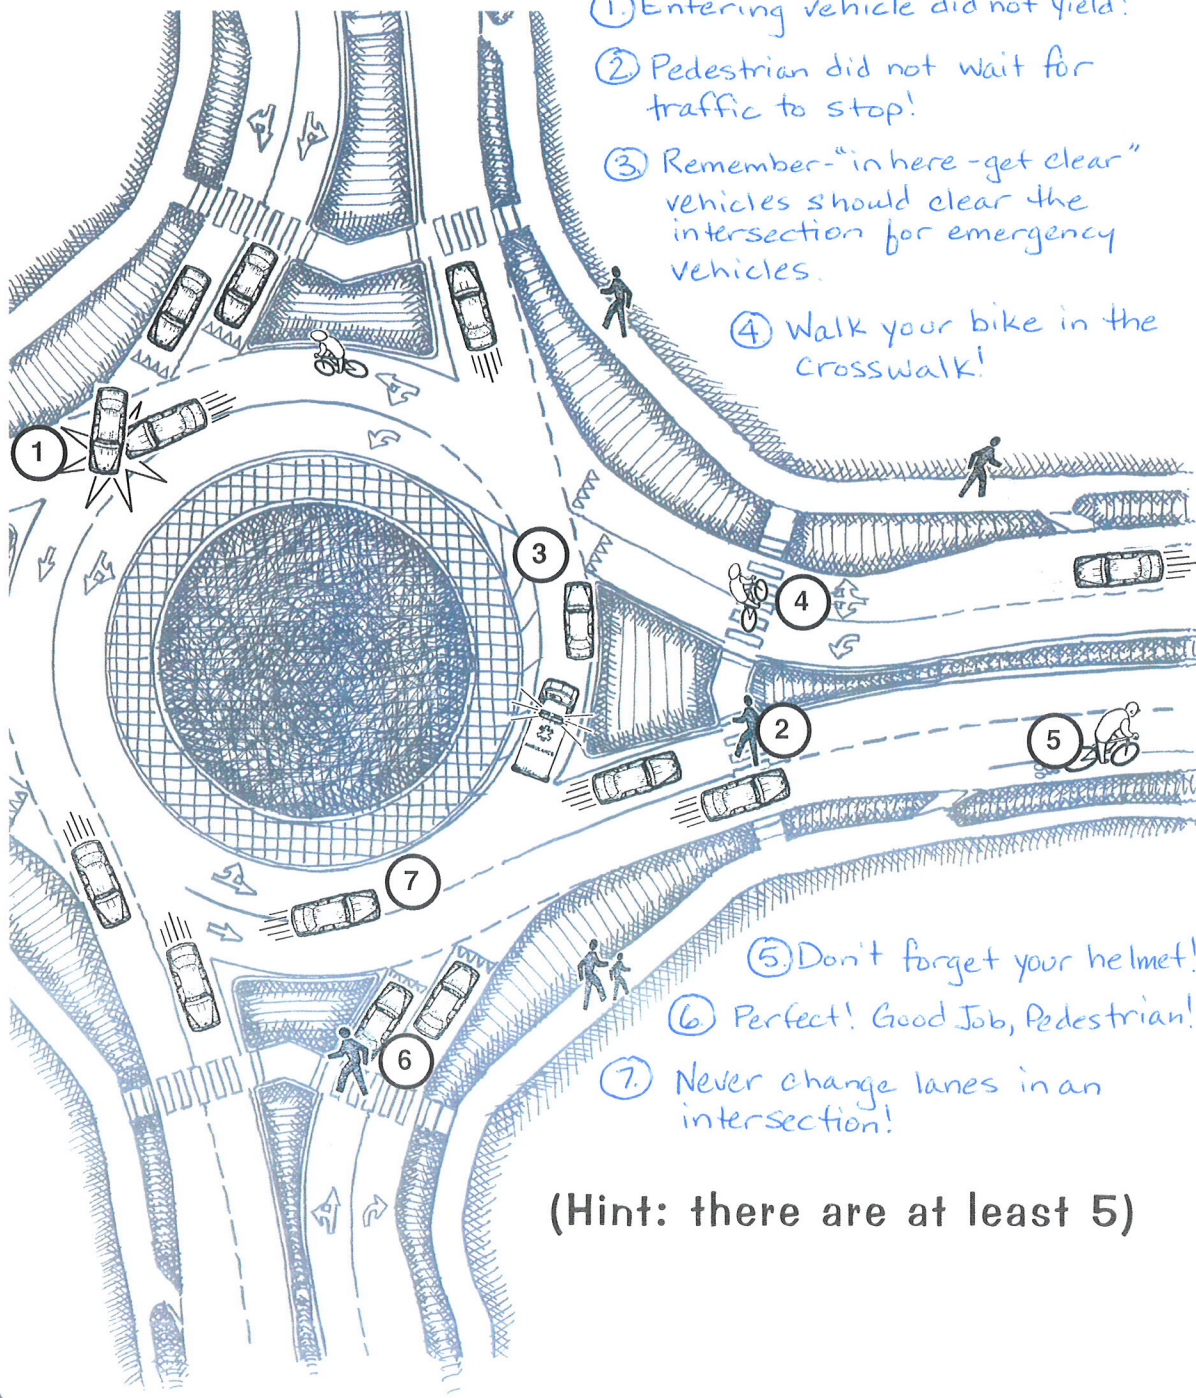 1. Entering vehicle did not yield!
2 Pedestrian did not wait for
traffic to stop!
3. Remember-"in here-get clear"
vehicles should clear the
intersection for emergency
vehicles.
4 Walk your bike in the
crosswalk!
1
3
4
2
AMBULANCE
5
7
6
5 Don't forget your helmet!
6. Perfect! Good Job, Pedestrian!
7. Never change lanes in an
intersection!
(Hint: there are at least 5)